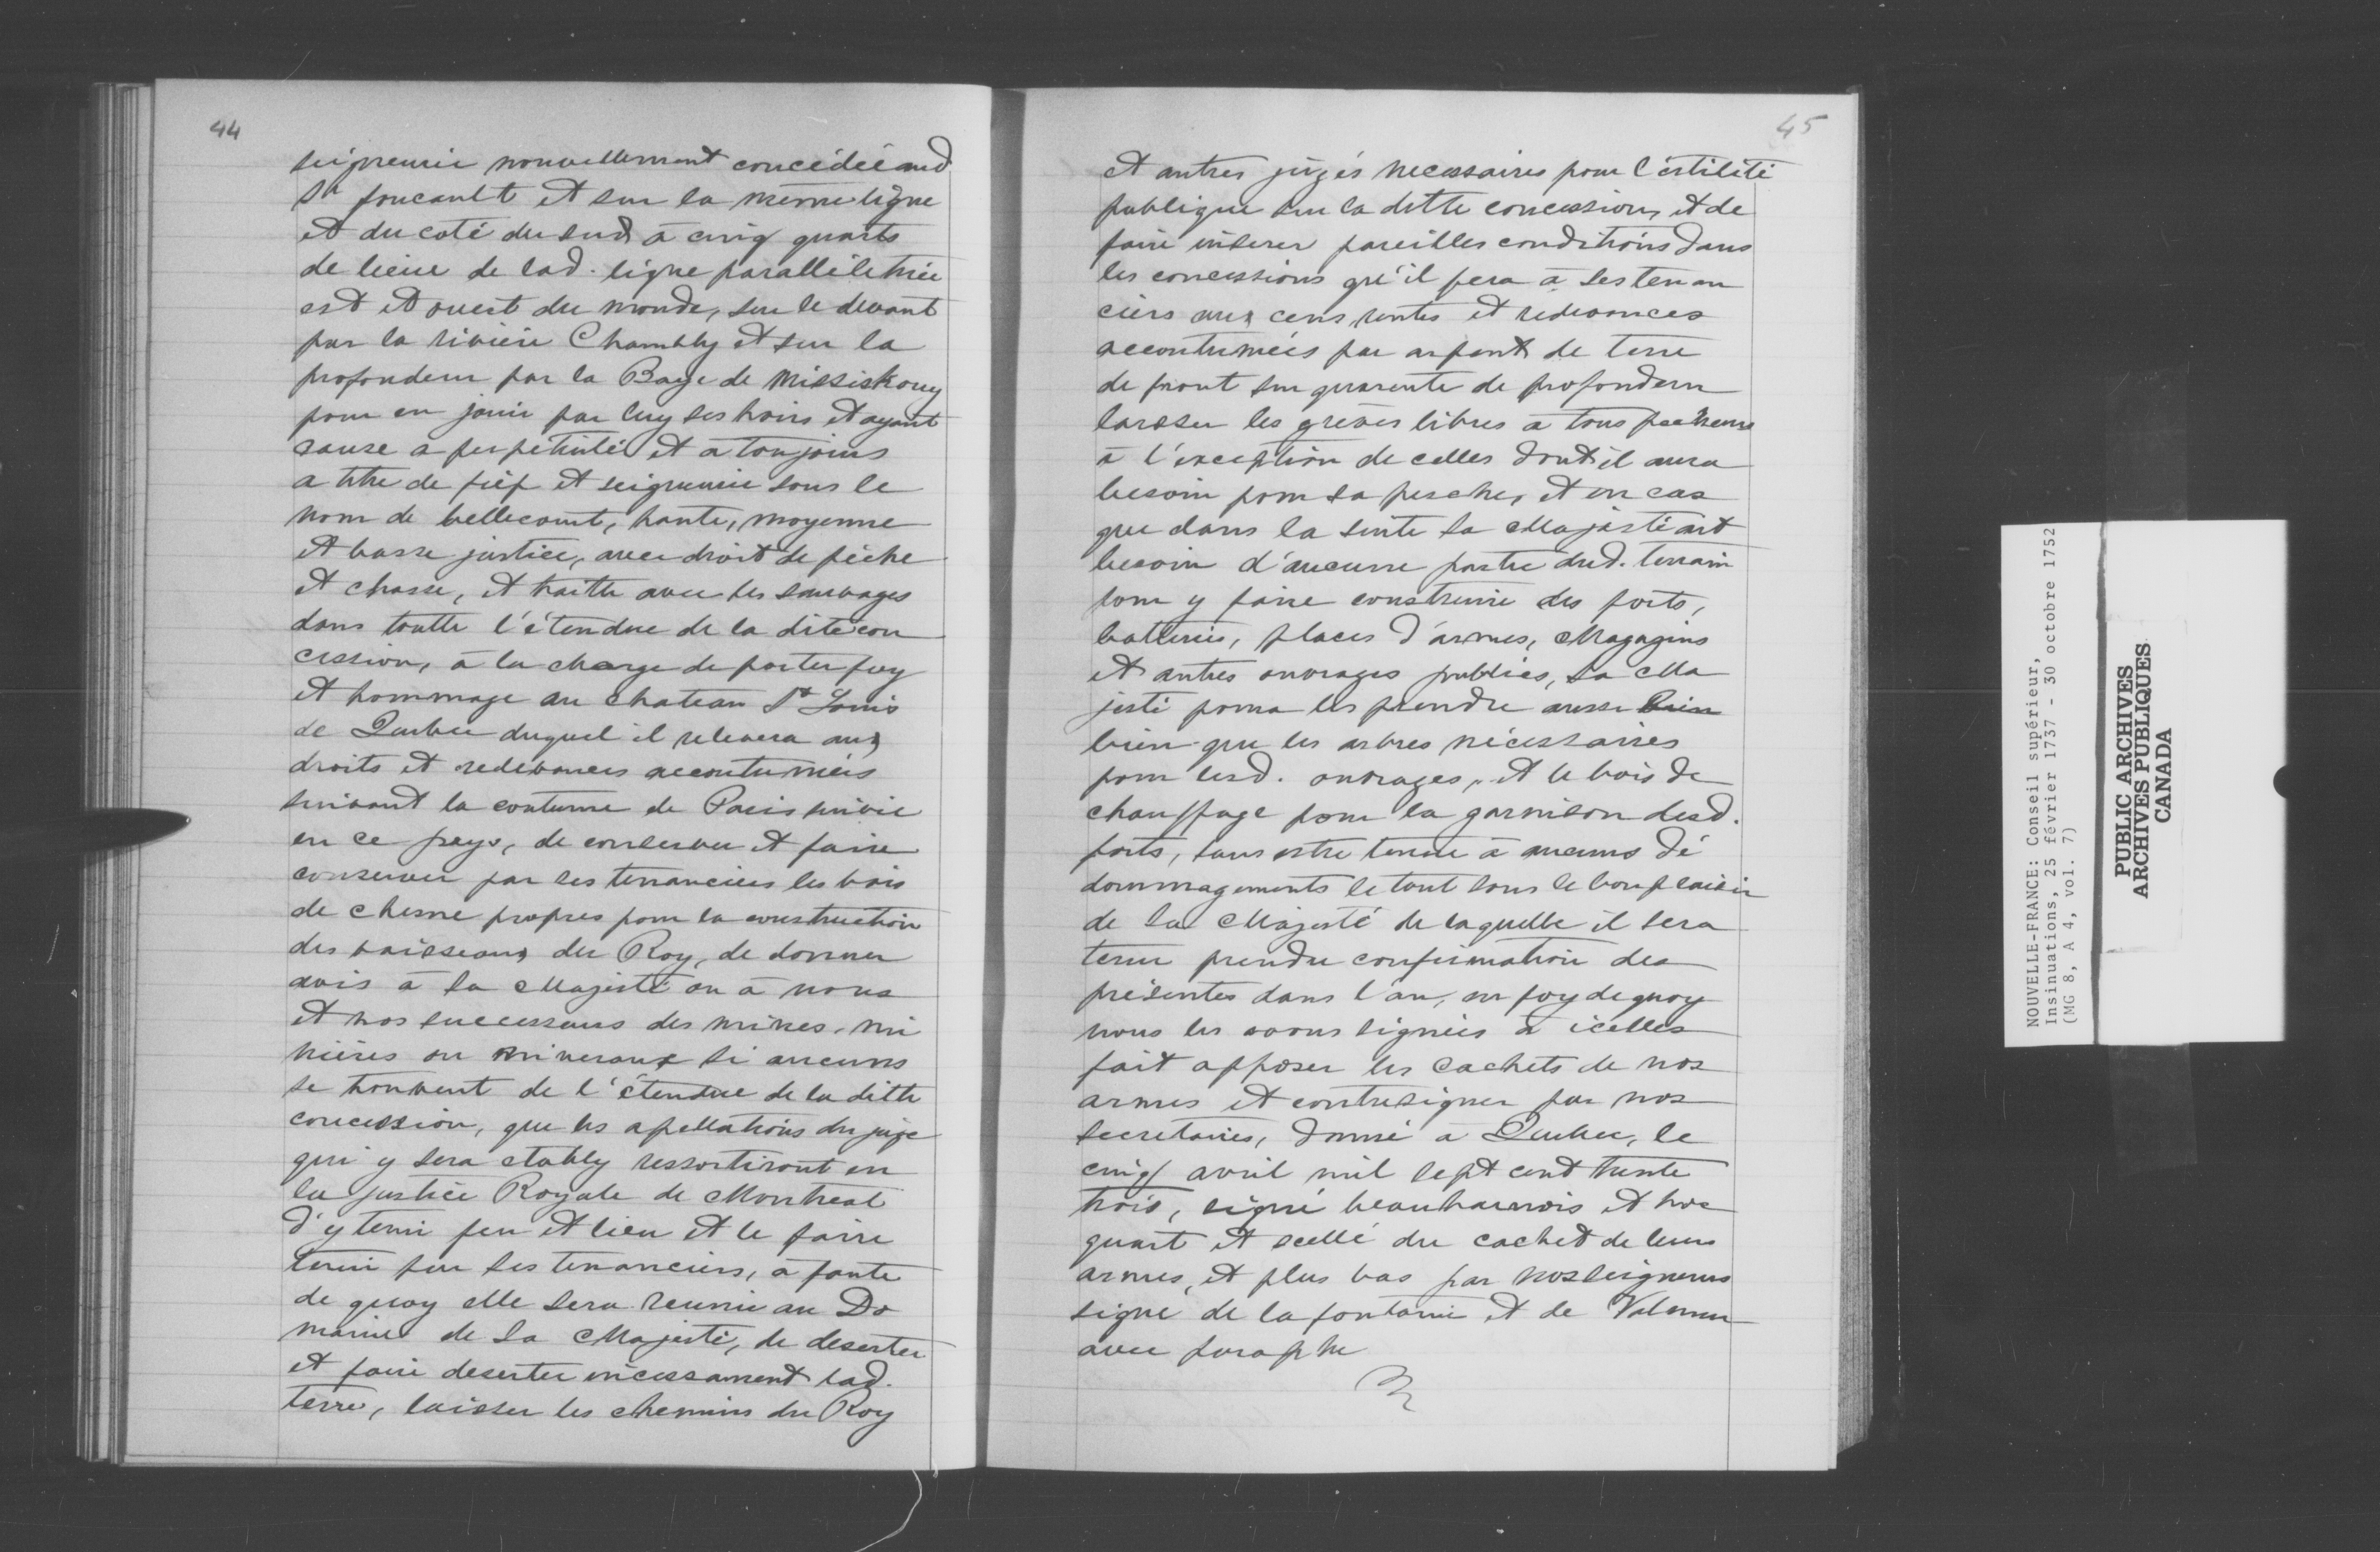 44
seigneurie nouvellement concédée aud
Sr foucault et sur la même ligne
et du coté du sud à cinq quarts
de lieüe de lad. ligne parallèle tirée
est et ouest du monde, sur le devant
par la rivière Chambly et sur la
profondeur par la Baye de Missiskouy
pour en jouir par luy ses hoirs et ayant
cause a perpétuité et a toujours
a titre de fief et seigneurie sous le
nom de bellecourt, haute, moyenne
et basse justice, avec droit de pêche
et chasse, et traitte avec les sauvages
dans toutte l'étendue de la dite con
cession, à la charge de porter foy
et hommage au chateau St Louis
de Quebec duquel il relevera aux
droits et redevances accoutumées
suivant la coutume de Paris suivie
en ce pays, de conserver et faire
conserver par ses tenanciers les bois
de chesne propres pour la construction
des vaisseaux du Roy, de donner
avis à sa Majesté ou à nous
et nos successeurs des mines, mi
nières ou mineraux si aucuns
se trouvent de l'étendue de la ditte
concession, que les apellations du juge
qui y sera etably ressortiront en
la justice Royale de Montreal
d'y tenir feu et lieu et le faire
tenir par ses tenanciers, a faute
de quoy elle sera reunie au Do
maine de Sa Majesté, de deserter
et faire deserter incessament lad.
terre, laisser les chemins du Roy
45
et autres jugés necessaires pour l'utilité
publique sur la ditte concession, et de
faire inserer pareilles conditions dans
les concessions qu'il fera à ses tenan
ciers aux cens, rentes et redevances
accoutumées par arpent de terre
de front sur quarente de profondeur
laisser les grèves libres à tous pecheurs
à l'exception de celles dont il aura
besoin pour sa pesche, et en cas
que dans la suite sa Majesté ait
besoin d'aucune partie dud. terrain
pour y faire construire des forts,
batteries, places d'armes, Magazins
et autres ouvrages publics, sa Ma
jesté pourra les prendre aussi bien
bien que les arbres nécessaires
pour lesd. ouvrages, et le bois de
chauffage pour la garnison desd.
forts, sans estre tenue à aucuns dé
dommagements le tout sous le bon plaisir
de Sa Majesté de laquelle il sera
tenu prendre confirmation des
présentes dans l'an, en foy de quoy
nous les avons signées à icelles
fait apposer les cachets de nos
armes et contresigner par nos
secretaires, donné à Quebec, le
cinq avril mil sept cent trente
trois, signé beauharnois et hoc
quart et scellé du cachet de leurs
armes, et plus bas par nosseigneurs
signé de la fontaine et de Valmur
avec paraphe
NOUVELLE-FRANCE: Conseil supérieur,
Insinuations, 25 février 1737 - 30 octobre 1752
(MG 8, A 4, vol. 7)
PUBLIC ARCHIVES
ARCHIVES PUBLIQUES
CANADA